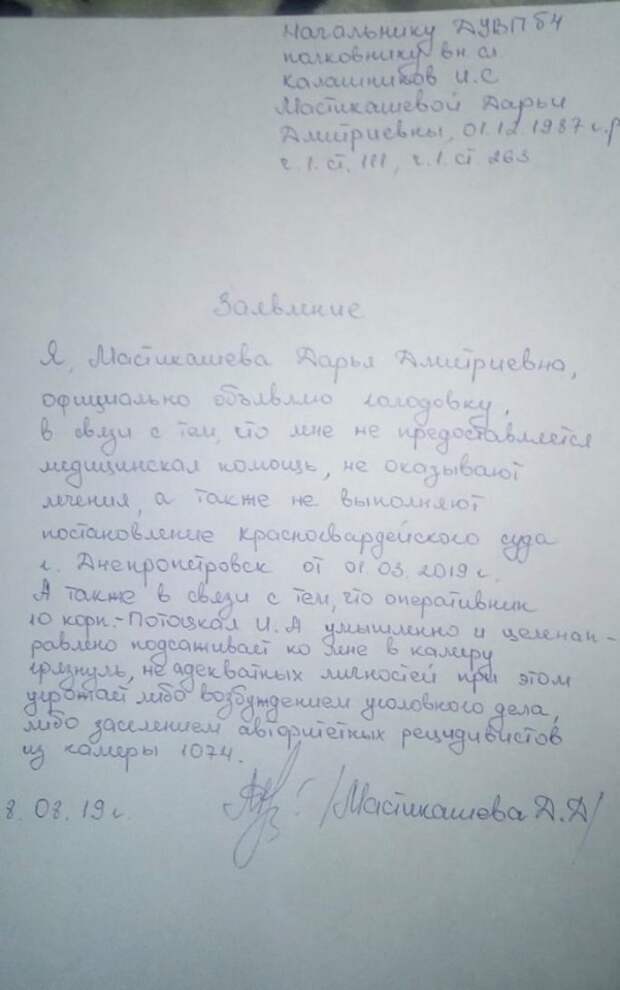 Начальнику ДУВП б4
полковнику вн сл
Калашников И.С
Мастикашевой Дарьи
Дмитриевны, 01.12.1987 г.р
ч.1.ст.111, ч.1.ст 263
Заявление
Я, Мастикашева Дарья Дмитриевна,
официально объявляю голодовку,
в связи с тем, что мне не предоставляется
медицинская помощь, не оказывают
лечения, а также не выполняют
постановление Красногвардейского суда
г. Днепропетровск от 01.03.2019 г.
А также в связи с тем, что оперативник
10 корп.-Потоцкая И.А умышленно и целенап-
равлено подсаживает ко мне в камеру
грязнуль, не адекватных личностей при этом
угрожает либо возбуждением уголовного дела,
либо заселением авторитетных рецидивистов
из камеры 1074.
8.08.19 г. /Мастикашева Д.Д/